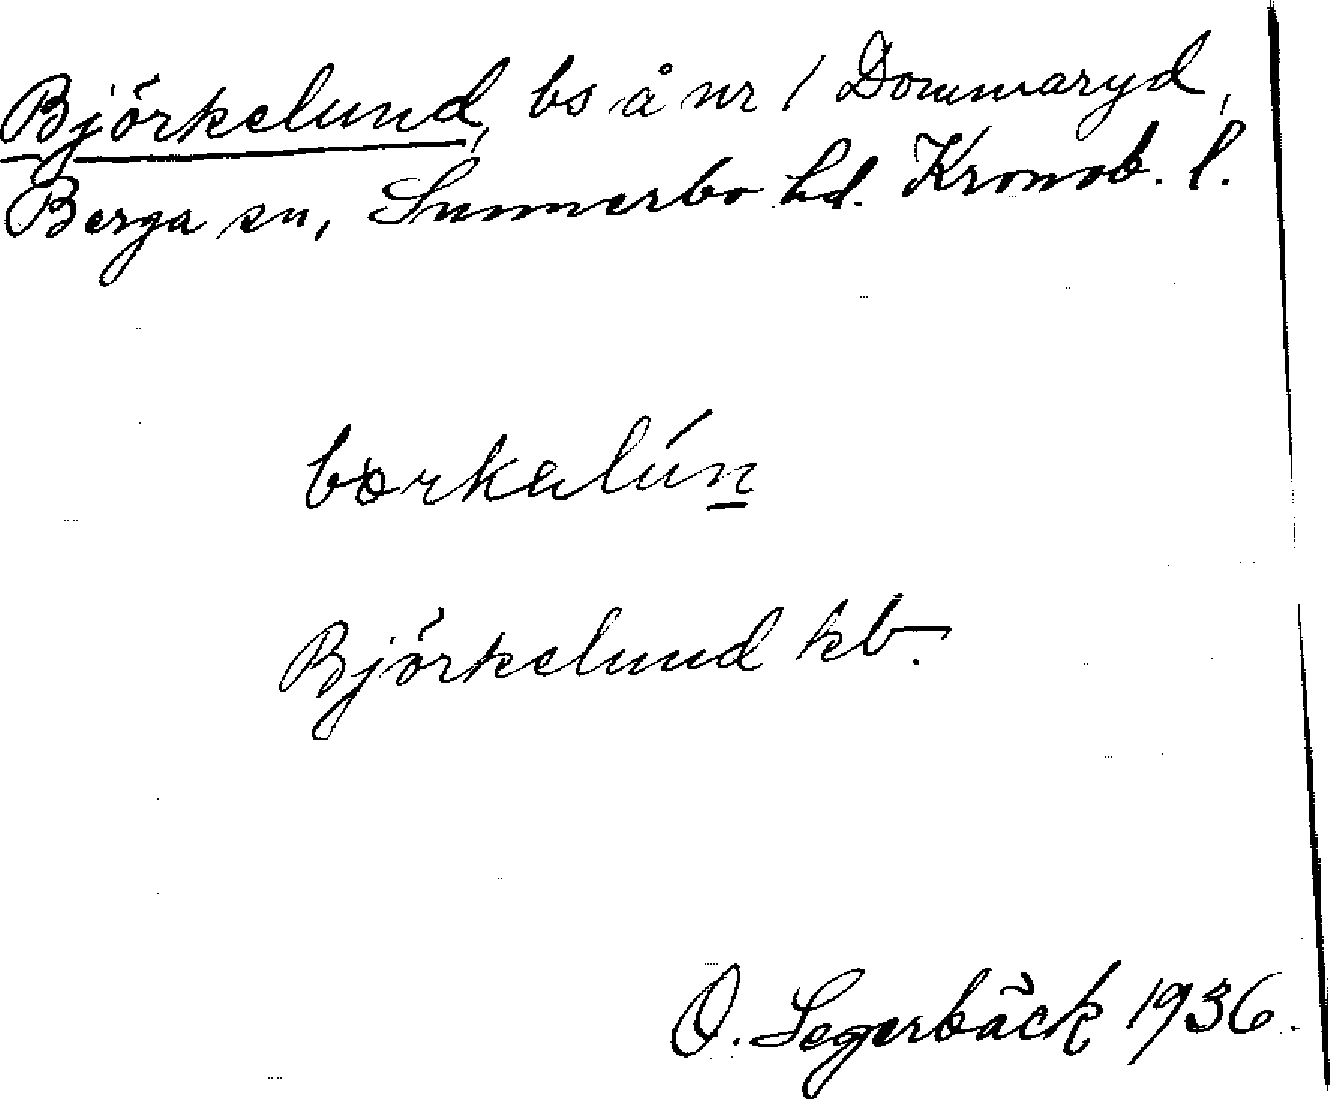 Björkelund, bs å nr 1 Dommaryd,
Berga sn, Sunnerbo hd. Kronob. l.
bərkalún
Björkelund kb.
O. Segerbäck 1936.